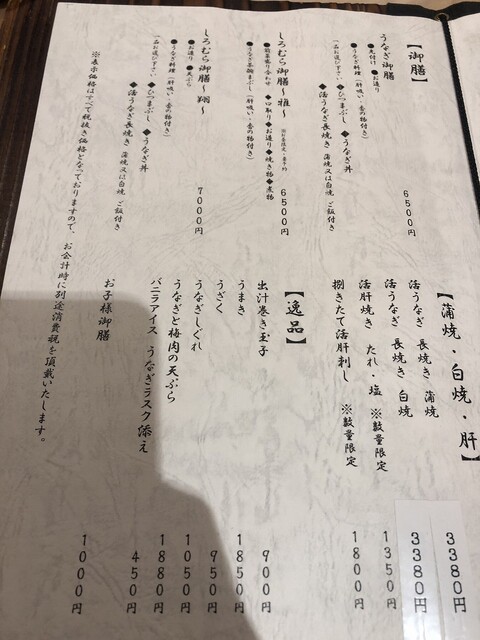 【御膳】
うなぎ御膳 6500円
●先付け ●お造り
●うなぎ料理（肝吸い・香の物付き）
一品お選び下さい ◆ひつまぶし ◆うなぎ丼
◆活うなぎ長焼き 蒲焼又は白焼 ご飯付き
しろむら御膳～雅～ 6500円
●前菜盛り合わせ ●口取り ●お造り ●焼き物 ●煮物
●うなぎ茶碗まぶし（肝吸い・香の物付き）
しろむら御膳～翔～ 7000円
●お造り ●天ぷら
●うなぎ料理（肝吸い・香の物付き）
一品お選び下さい ◆ひつまぶし ◆うなぎ丼
◆活うなぎ長焼き 蒲焼又は白焼 ご飯付き
※表示価格はすべて税抜き価格となっておりますので、お会計時に別途消費税を頂戴いたします。
【蒲焼・白焼・肝】
活うなぎ 長焼き 蒲焼 3380円
活うなぎ 長焼き 白焼 3380円
活肝焼き たれ・塩 ※数量限定 1350円
捌きたて活肝刺し ※数量限定 1800円
【逸品】
出汁巻き玉子 900円
うまき 1850円
うざく 950円
うなぎしぐれ 1050円
うなぎと梅肉の天ぷら 1880円
バニラアイス うなぎラスク添え 450円
お子様御膳 1000円